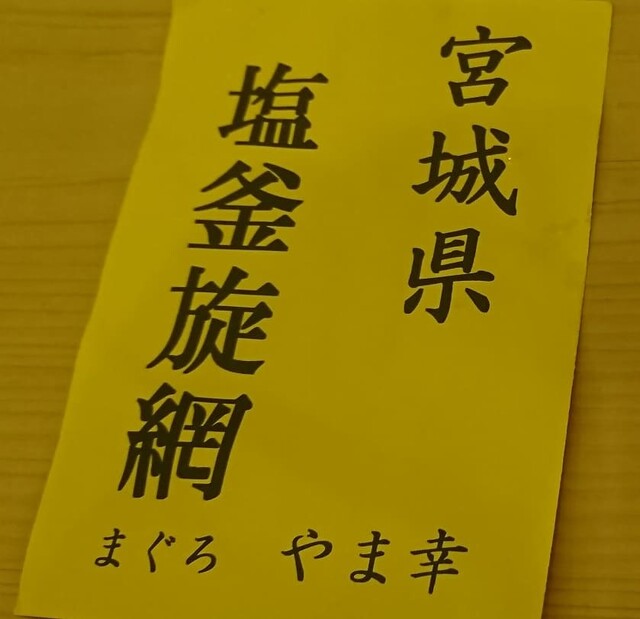 宮城県
塩釜旋網
まぐろ やま幸